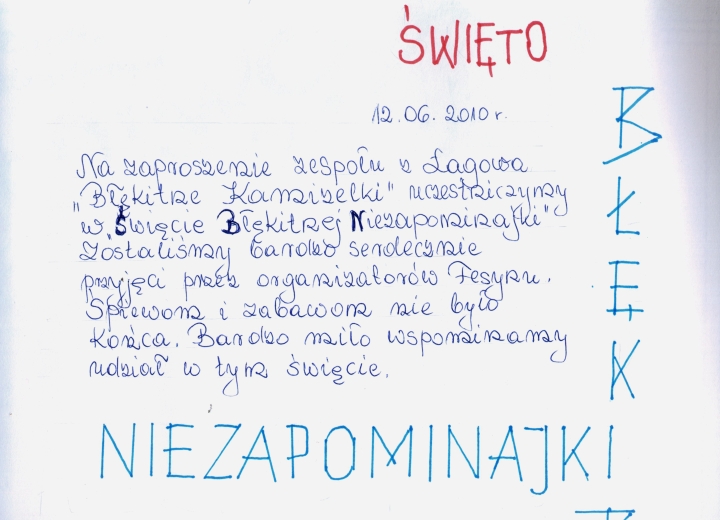 ŚWIĘTO
12.06.2010 r.
Na zaproszenie zespołu z Łagowa
"Błękitne Kamizelki" uczestniczymy
w "Święcie Błękitnej Niezapominajki"
Zostaliśmy bardzo serdecznie
przyjęci przez organizatorów Fesynu.
Śpiewom i zabawom nie było
końca. Bardzo miło wspominamy
udział w tym święcie.
BŁĘKI
NIEZAPOMINAJKI